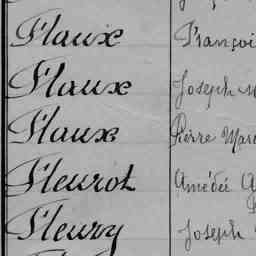 Flaux Françoi
Flaux Joseph M
Flaux Pierre Mar
Fleurot Amédée A
Fleury Joseph